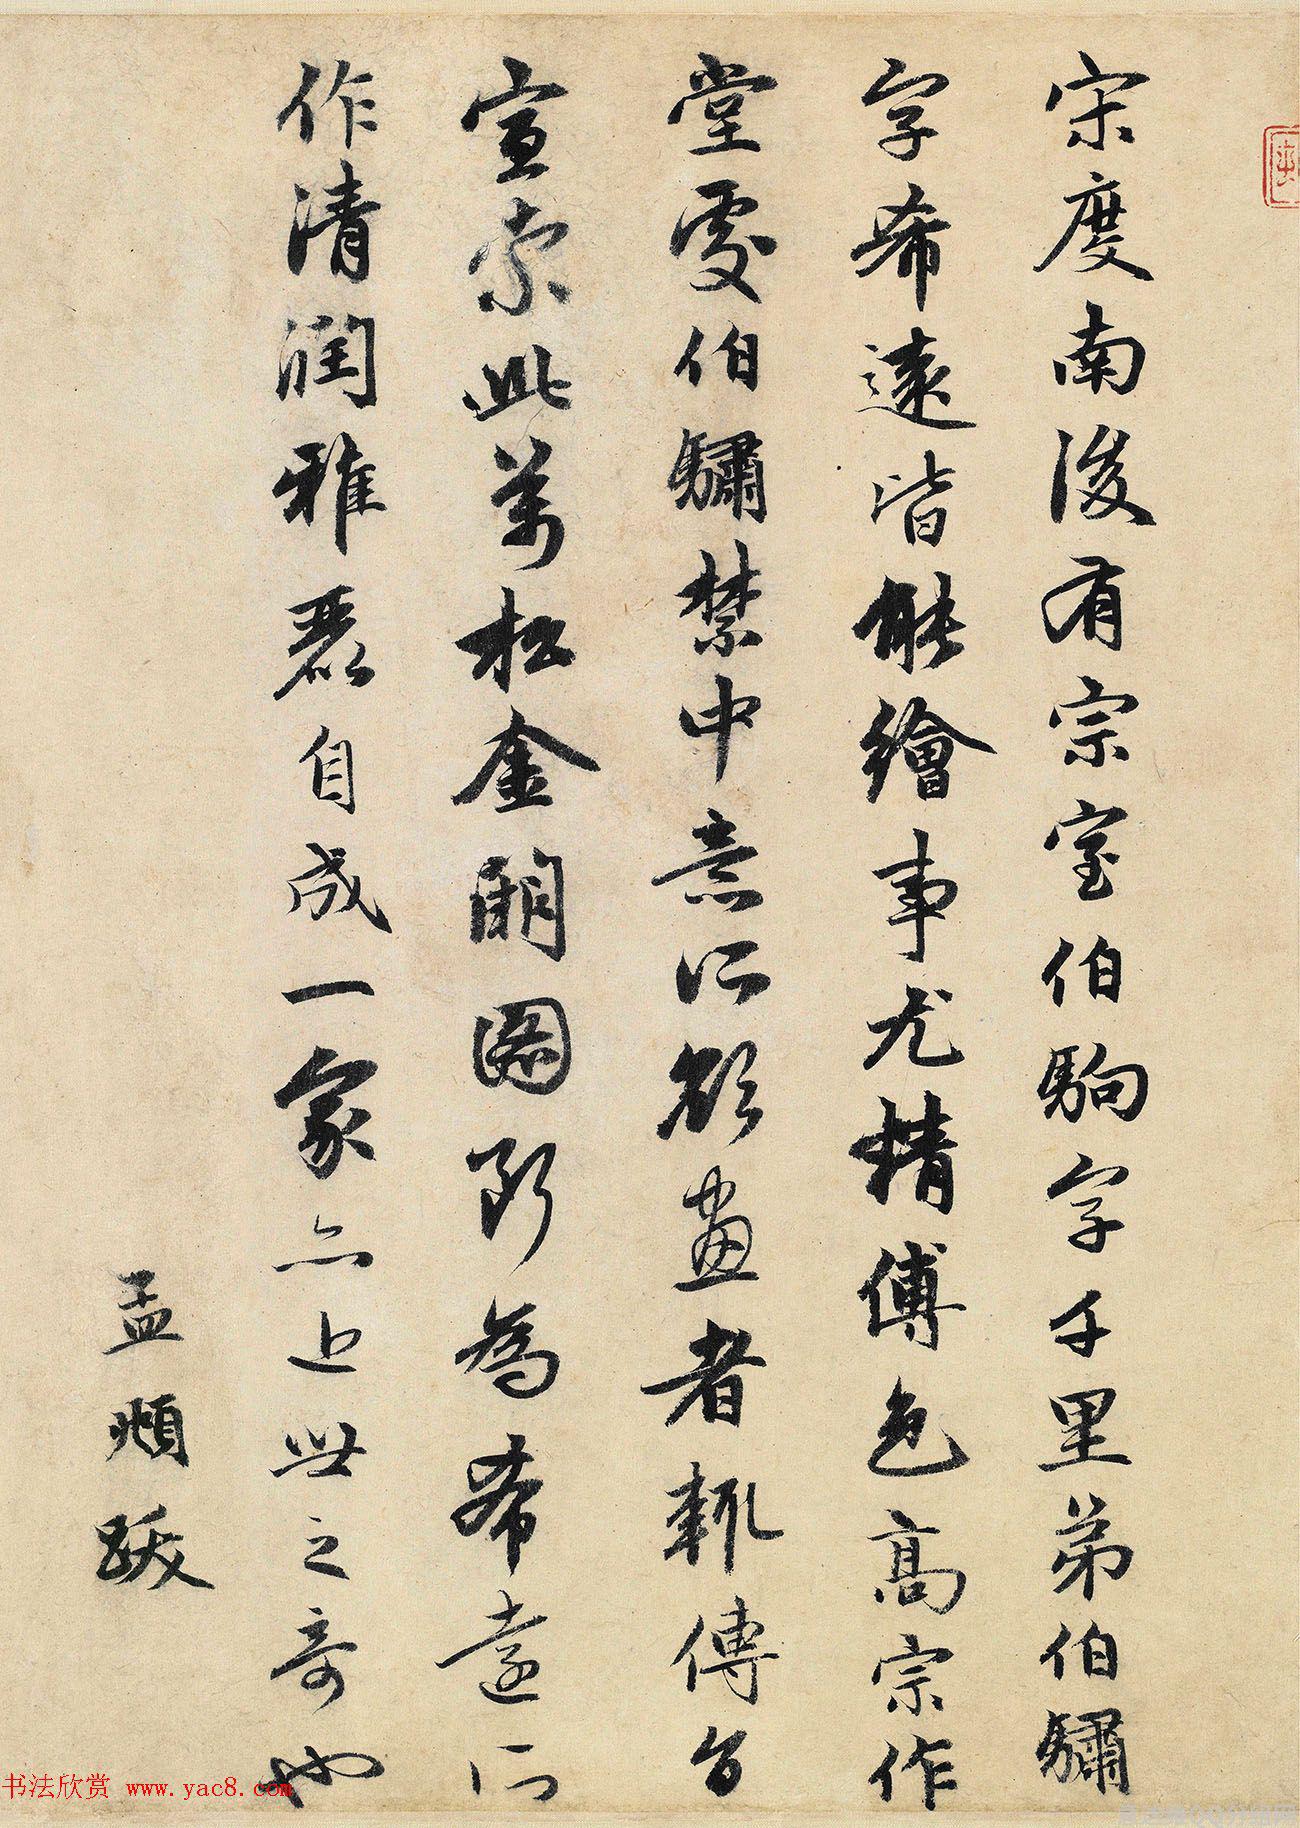 宋度南後有宗室伯駒字千里弟伯驌
字希遠皆能繪事尤精傅色高宗作
堂處伯驌禁中意所欲畫者輒傳旨
宣索此萬松金闕圖斷為希遠所
作清潤雅麗自成一家亦近世之奇也
孟頫跋
书法欣赏 www.yac8.com